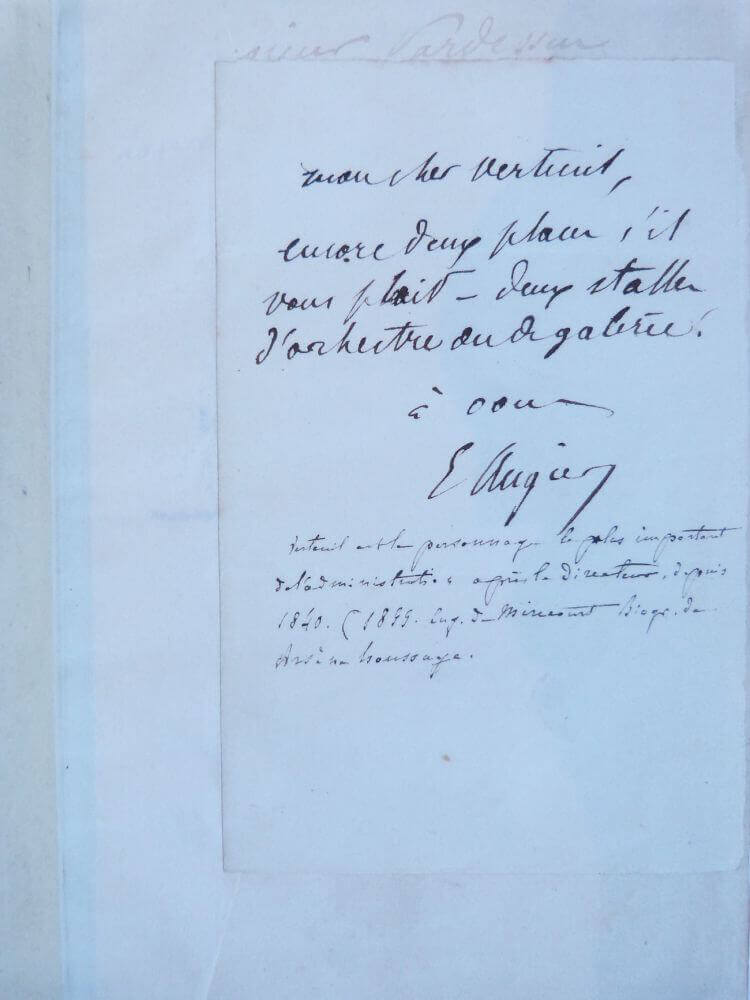 sieur Pardessus
mon cher Verteuil,
encore deux places s'il
vous plait – deux stalles
d'orchestre ou de galerie.
à vous
E Augier
Verteuil est le personnage le plus important
de l'administration après le Directeur, depuis
1840. (1855. Eug. de Mirecourt Biogr. de
Arsène houssaye.